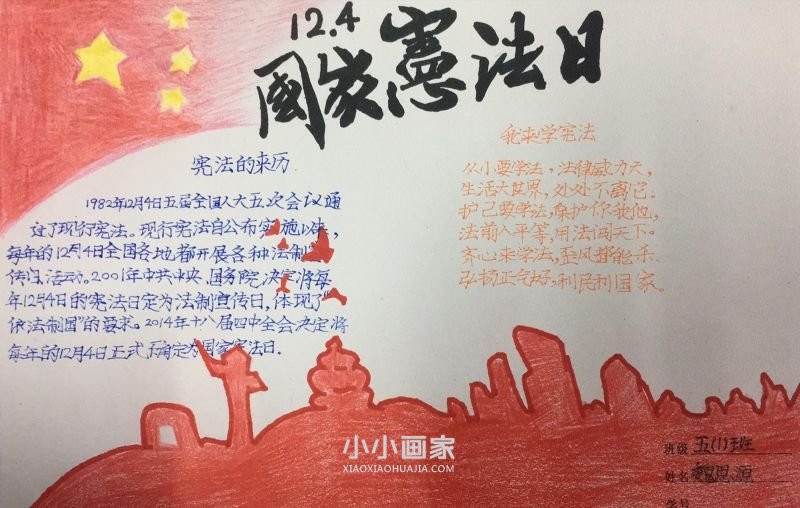 12.4
国家憲法日
宪法的来历
1982年12月4日五届全国人大五次会议通
过了现行宪法。现行宪法自公布实施以来,
每年的12月4日全国各地都开展各种法制宣
传活动。2001年中共中央、国务院决定将每
年12月4日的宪法日定为法制宣传日,体现了“
依法制国”的要求。2014年十八届四中全会决定将
每年的12月4日正式确定为国家宪法日.
我来学宪法
从小要学法,法律威力大,
生活大世界,处处不离它。
护己要学法,保护你我他,
法前人平等,用法闯天下。
齐心来学法,歪风都能杀,
弘扬正气好,利民利国家。
小小画家
XIAOXIAOHUAJIA.COM
班级 五(1)班
姓名 源
学号